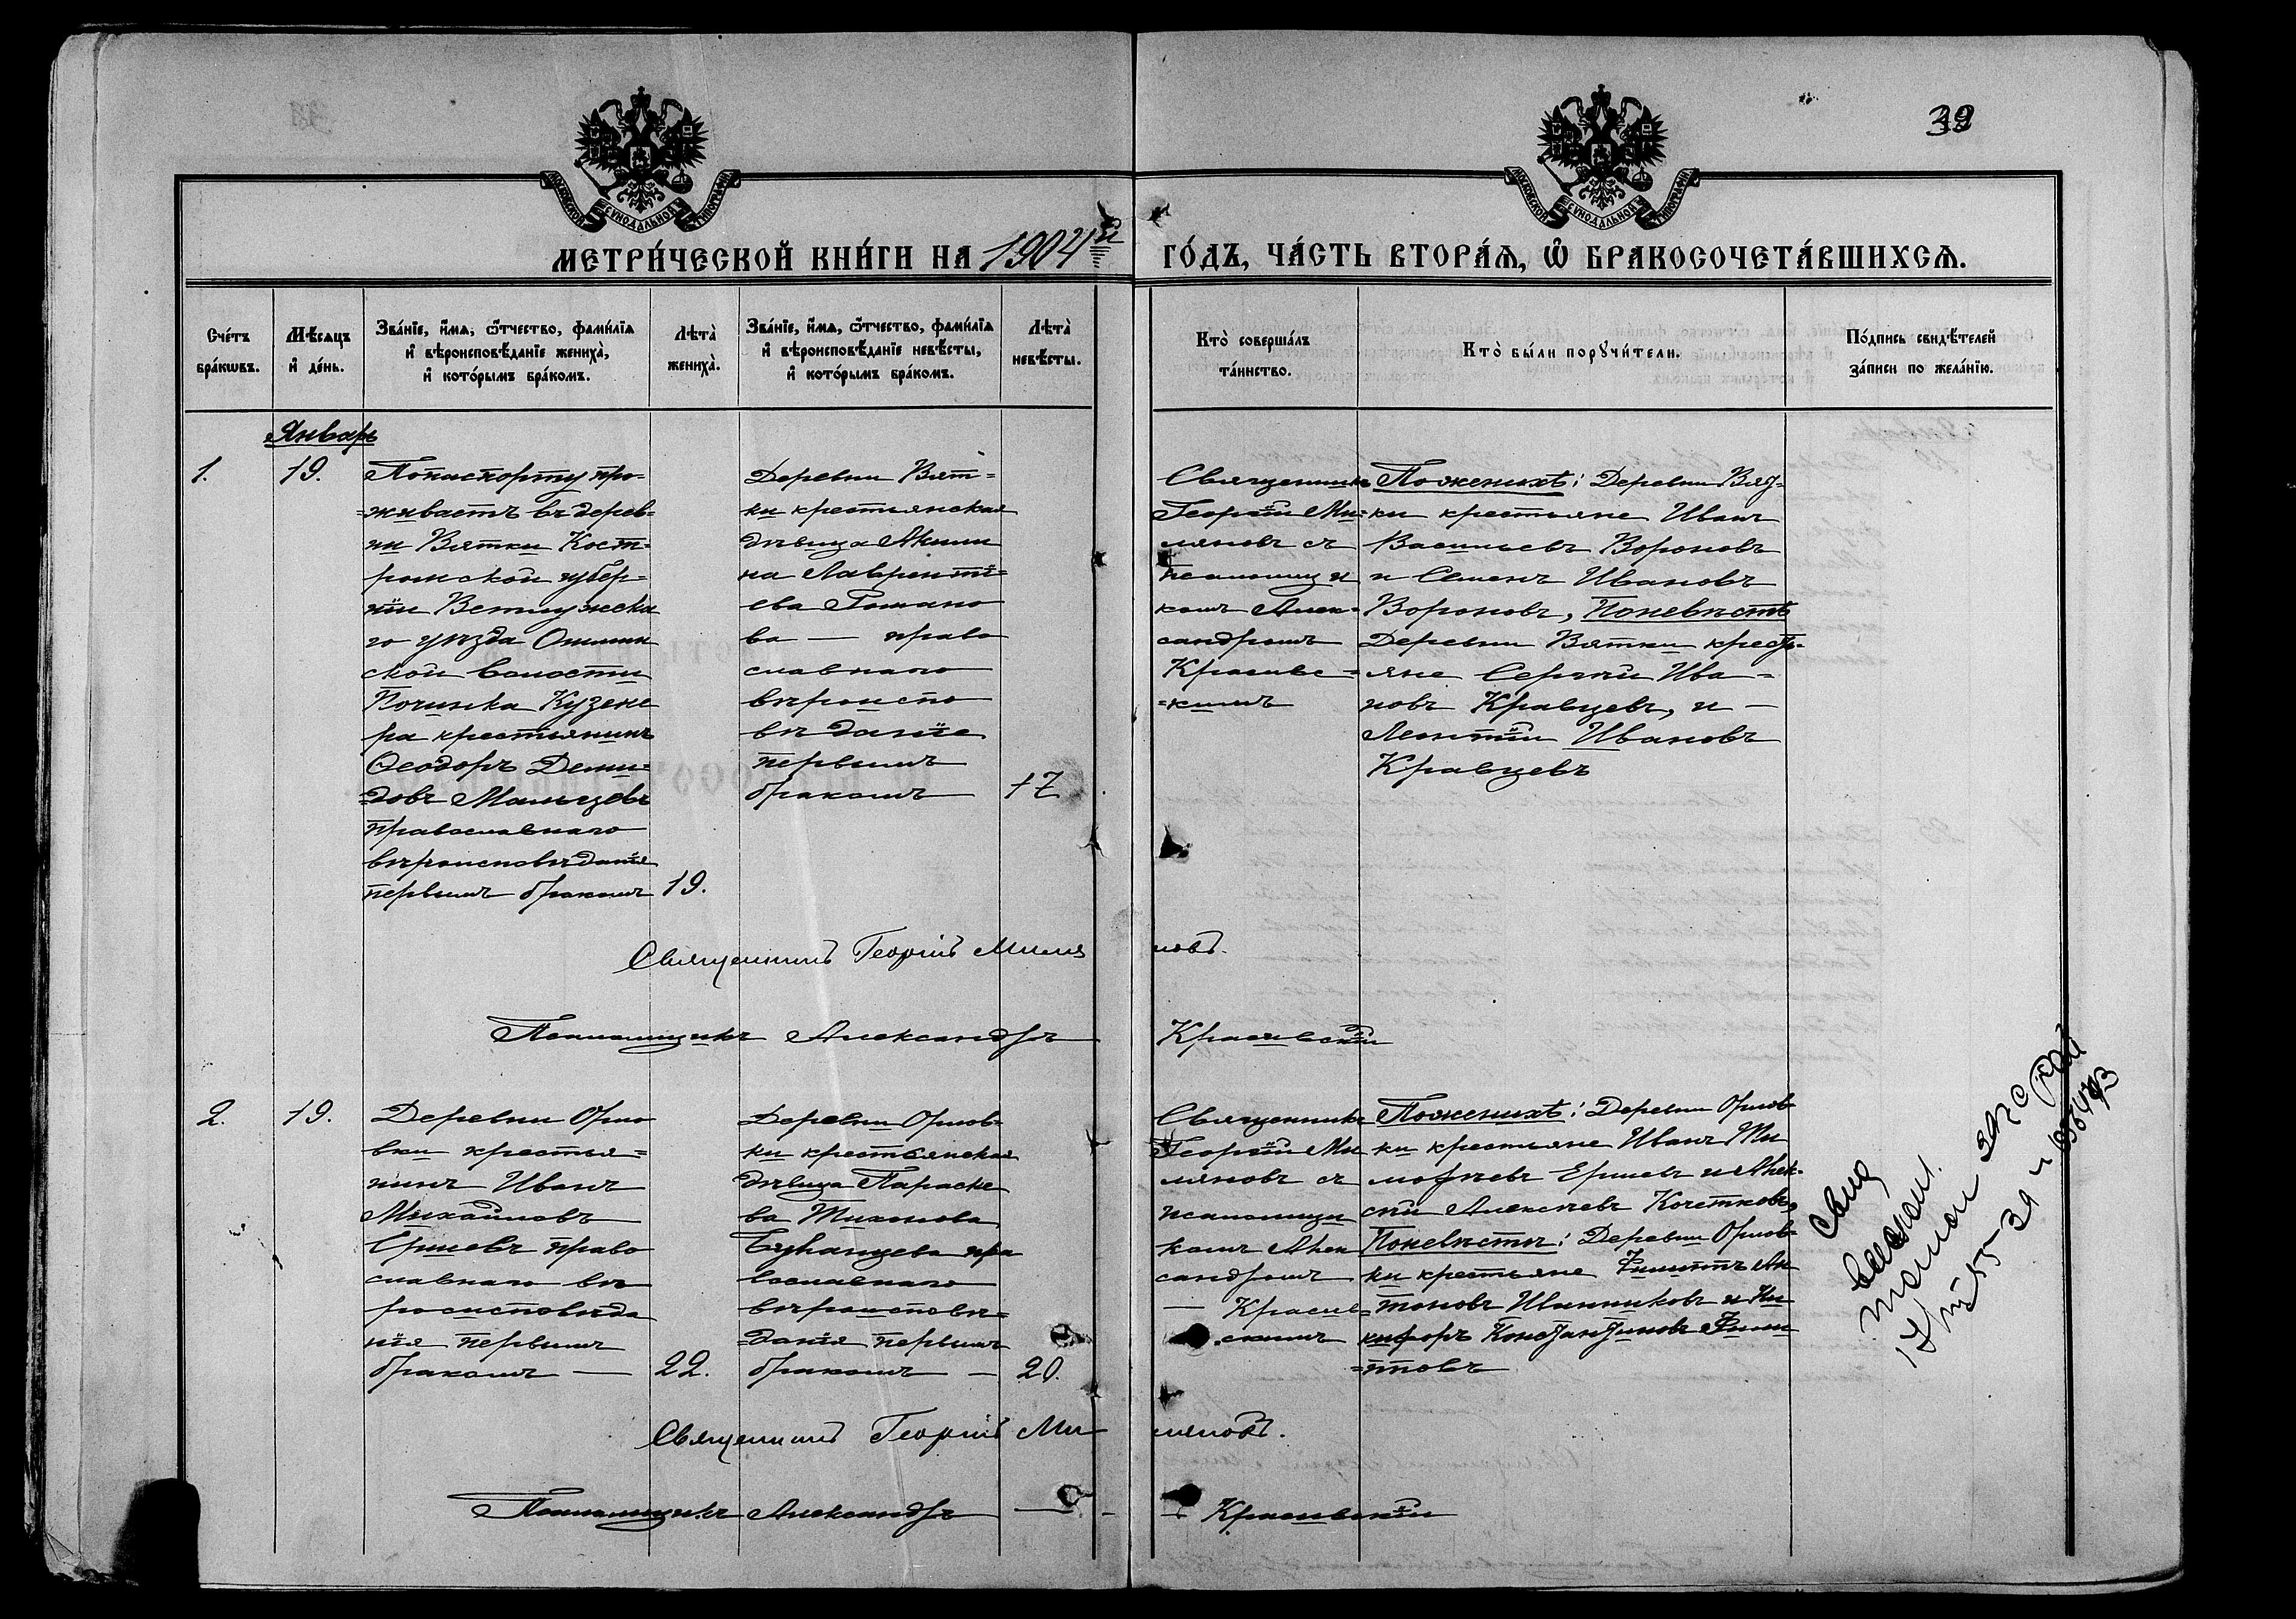 39
МОСКОВСКОЙ СУНОДАЛЬНОЙ ТИПОГРАФІИ
МОСКОВСКОЙ СУНОДАЛЬНОЙ ТИПОГРАФІИ
МЕТРИ́ЧЕСКОЙ КНИ́ГИ НА 1904й ГО́ДЪ, ЧА́СТЬ ВТОРА́Ѧ, Ѽ БРАКОСОЧЕТА́ВШИХСѦ.
Сче́тъ
бра́кѡвъ.
Мѣ́сѧцъ
и҆ де́нь.
Зва́нїе, и҆́мѧ, ѻ҆́тчество, фами́лїѧ
и҆ вѣроисповѣ́данїе жениха̀,
и҆ кото́рымъ бра́комъ.
Лѣта̀
жениха̀.
Зва́нїе, и҆́мѧ, ѻ҆́тчество, фами́лїѧ
и҆ вѣроисповѣ́данїе невѣ́сты,
и҆ кото́рымъ бра́комъ.
Лѣта̀
невѣ́сты.
Кто̀ соверша́лъ
та́инство.
Кто̀ бы́ли порꙋчи́тели.
По́дпись свидѣ́телей
за́писи по жела́нїю.
Январь
1.
19.
Попаспорту про-
=живаетъ въ дерев=
ни Вятки Кост=
ромской губер=
ніи Ветлужска
го уѣзда Ошмин
ской волости
Починка Кузене
ра крестьянинъ
Ѳеодоръ Деми=
=довъ Мальцевъ
православнаго
вѣроисповѣданія
первымъ бракомъ
19.
Деревни Вят=
ки крестьянская
дѣвица Акили
на Лаврентi=
ева
ва — право
славнаго
вѣроиспо
вѣданіе
первымъ
бракомъ
17
Священникъ
Георгій Ми=
ляновъ съ
псаломщи
комъ Алек=
сандромъ
Красивс=
=кимъ
Поженихѣ: Деревни Вят=
ки крестьяне Иванъ
Васильевъ Вороновъ
и Семенъ Ивановъ
Вороновъ, Поневѣстѣ
Деревни Вятки кресть=
яне Сергѣй Ива=
новъ Кравцевъ, и —
Леонтій Ивановъ
Кравцевъ
Священникъ Георгій Миляновъ.
Псаломщикъ Александръ Красивскій
2.
19.
Деревни Орло
вки крестья=
нинъ Иванъ
Михайловъ
Ершевъ право
славнаго вѣ
роисповѣда
нія первымъ
бракомъ —
22.
Деревни Орлов=
ки крестьянская
дѣвица Параске
ва Тихонова
пра
вославнаго
вѣроисповѣ=
=данія первымъ
бракомъ —
20.
Священникъ
Георгій Ми
ляновъ съ
псаломщи
комъ Алек
сандромъ
— Красив=
скимъ
Поженихѣ: Деревни Орлов
ки крестьяне Иванъ Ти
моѳеевъ Ершевъ и Алек=
сѣй Алексѣевъ Кочетковъ,
Поневѣстѣ: Деревни Орлов=
ки крестьяне Филиппъ Ан
тоновъ и Ни
кифоръ Константиновъ Фили
=пповъ
Священникъ Георгій Миляновъ.
Псаломщикъ Александръ — Красивскій
свид
загс